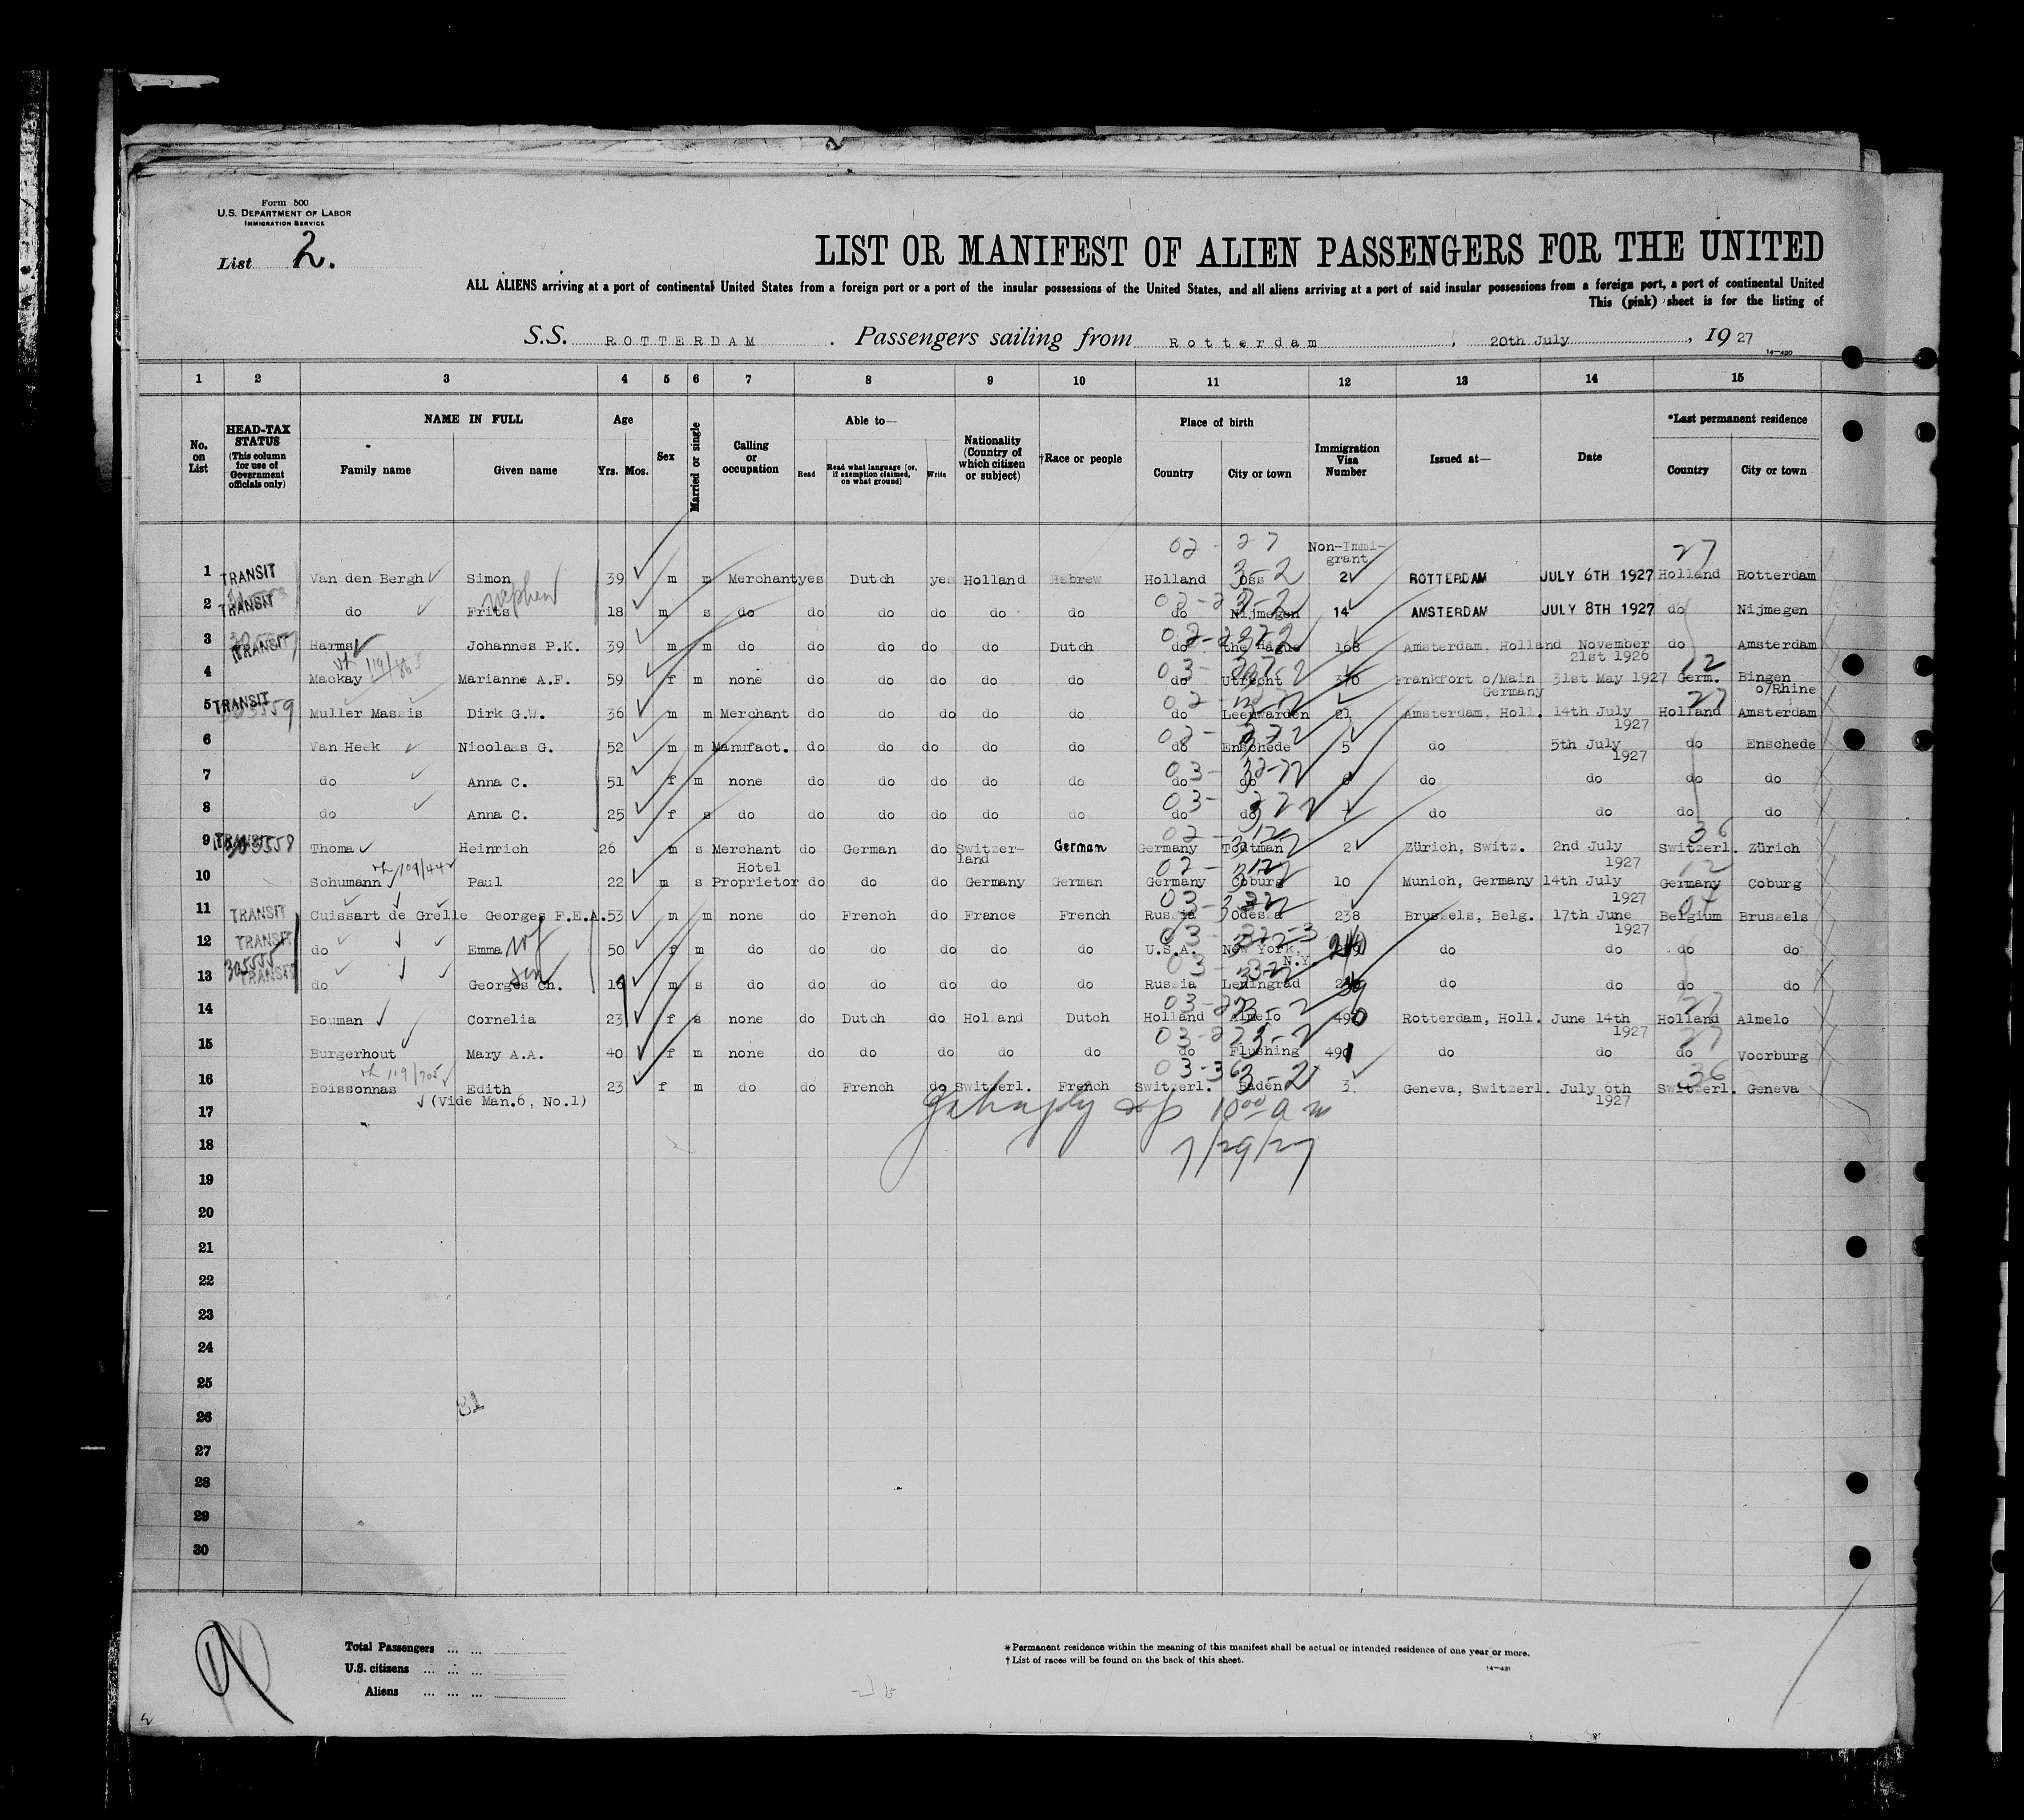 Form 500
U.S. DEPARTMENT OF LABOR
IMMIGRATION SERVICE
List 2.
LIST OR MANIFEST OF ALIEN PASSENGERS FOR THE UNITED
ALL ALIENS arriving at a port of continental United States from a foreign port or a port of the insular possessions of the United States, and all aliens arriving at a port of said insular possessions from a foreign port, a port of continental United
This (pink) sheet is for the listing of
S.S. ROTTERDAM . Passengers sailing from Rotterdam , 20th July , 19 27
14-420
1 2 3 4 5 6 7 8 9 10 11 12 13 14 15
No. on List
HEAD-TAX STATUS (This column for use of Government officials only)
NAME IN FULL
Family name Given name
Age
Yrs. Mos.
Sex
Married or single
Calling or occupation
Able to—
Read Read what language [or, if exemption claimed, on what ground] Write
Nationality (Country of which citizen or subject)
†Race or people
Place of birth
Country City or town
Immigration Visa Number
Issued at—
Date
*Last permanent residence
Country City or town
02 - 27 Non-Immi- 27
grant
1 TRANSIT Van den Bergh Simon 39 m m Merchant yes Dutch yes Holland Hebrew Holland Oss 2 ROTTERDAM JULY 6TH 1927 Holland Rotterdam
2 TRANSIT do Frits nephew 18 m s do do do do do do do Nijmegen 14 AMSTERDAM JULY 8TH 1927 do Nijmegen
3 TRANSIT Harms Johannes P.K. 39 m m do do do do do Dutch do the Hague 168 Amsterdam, Holland November do Amsterdam
21st 1926
4 Mackay Marianne A.F. 59 f m none do do do do do do Utrecht 370 Frankfort o/Main 31st May 1927 Germ. Bingen
Germany o/Rhine
5 TRANSIT Muller Massis Dirk G.W. 36 m m Merchant do do do do do do Leeuwarden 21 Amsterdam, Holl. 14th July Holland Amsterdam
1927
6 Van Heek Nicolaas G. 52 m m Manufact. do do do do do do Enschede 5 do 5th July do Enschede
1927
7 do Anna C. 51 f m none do do do do do do do do do do do
8 do Anna C. 25 f s do do do do do do do do do do do do
9 TRANSIT Thoma Heinrich 26 m s Merchant do German do Switzer- German Germany Todtman 2 Zürich, Switz. 2nd July Switzerl. Zürich
Hotel land 1927
10 Schumann Paul 22 m s Proprietor do do do Germany German Germany Coburg 10 Munich, Germany 14th July Germany Coburg
1927
11 TRANSIT Cuissart de Grelle Georges F.E.A. 53 m m none do French do France French Russia Odessa 238 Brussels, Belg. 17th June Belgium Brussels
1927
12 TRANSIT do Emma wf 50 f m do do do do do do U.S.A. New York, do do do do
N.Y.
13 305555 TRANSIT do Georges Ch. son 16 m s do do do do do do Russia Leningrad do do do do
14 Bouman Cornelia 23 f s none do Dutch do Holland Dutch Holland Almelo 490 Rotterdam, Holl. June 14th Holland Almelo
1927
15 Burgerhout Mary A.A. 40 f m none do do do do do do Flushing 491 do do do Voorburg
16 Boissonnas Edith 23 f m do do French do Switzerl. French Switzerl. Baden 3 Geneva, Switzerl. July 6th Switzerl. Geneva
(Vide Man.6, No.1) 1927
17
10 00 a m
18
7/29/27
19
20
21
22
23
24
25
26
27
28
29
30
Total Passengers ... ...
U.S. citizens ... ... ...
Aliens ... ... ...
*Permanent residence within the meaning of this manifest shall be actual or intended residence of one year or more.
†List of races will be found on the back of this sheet.
14-421